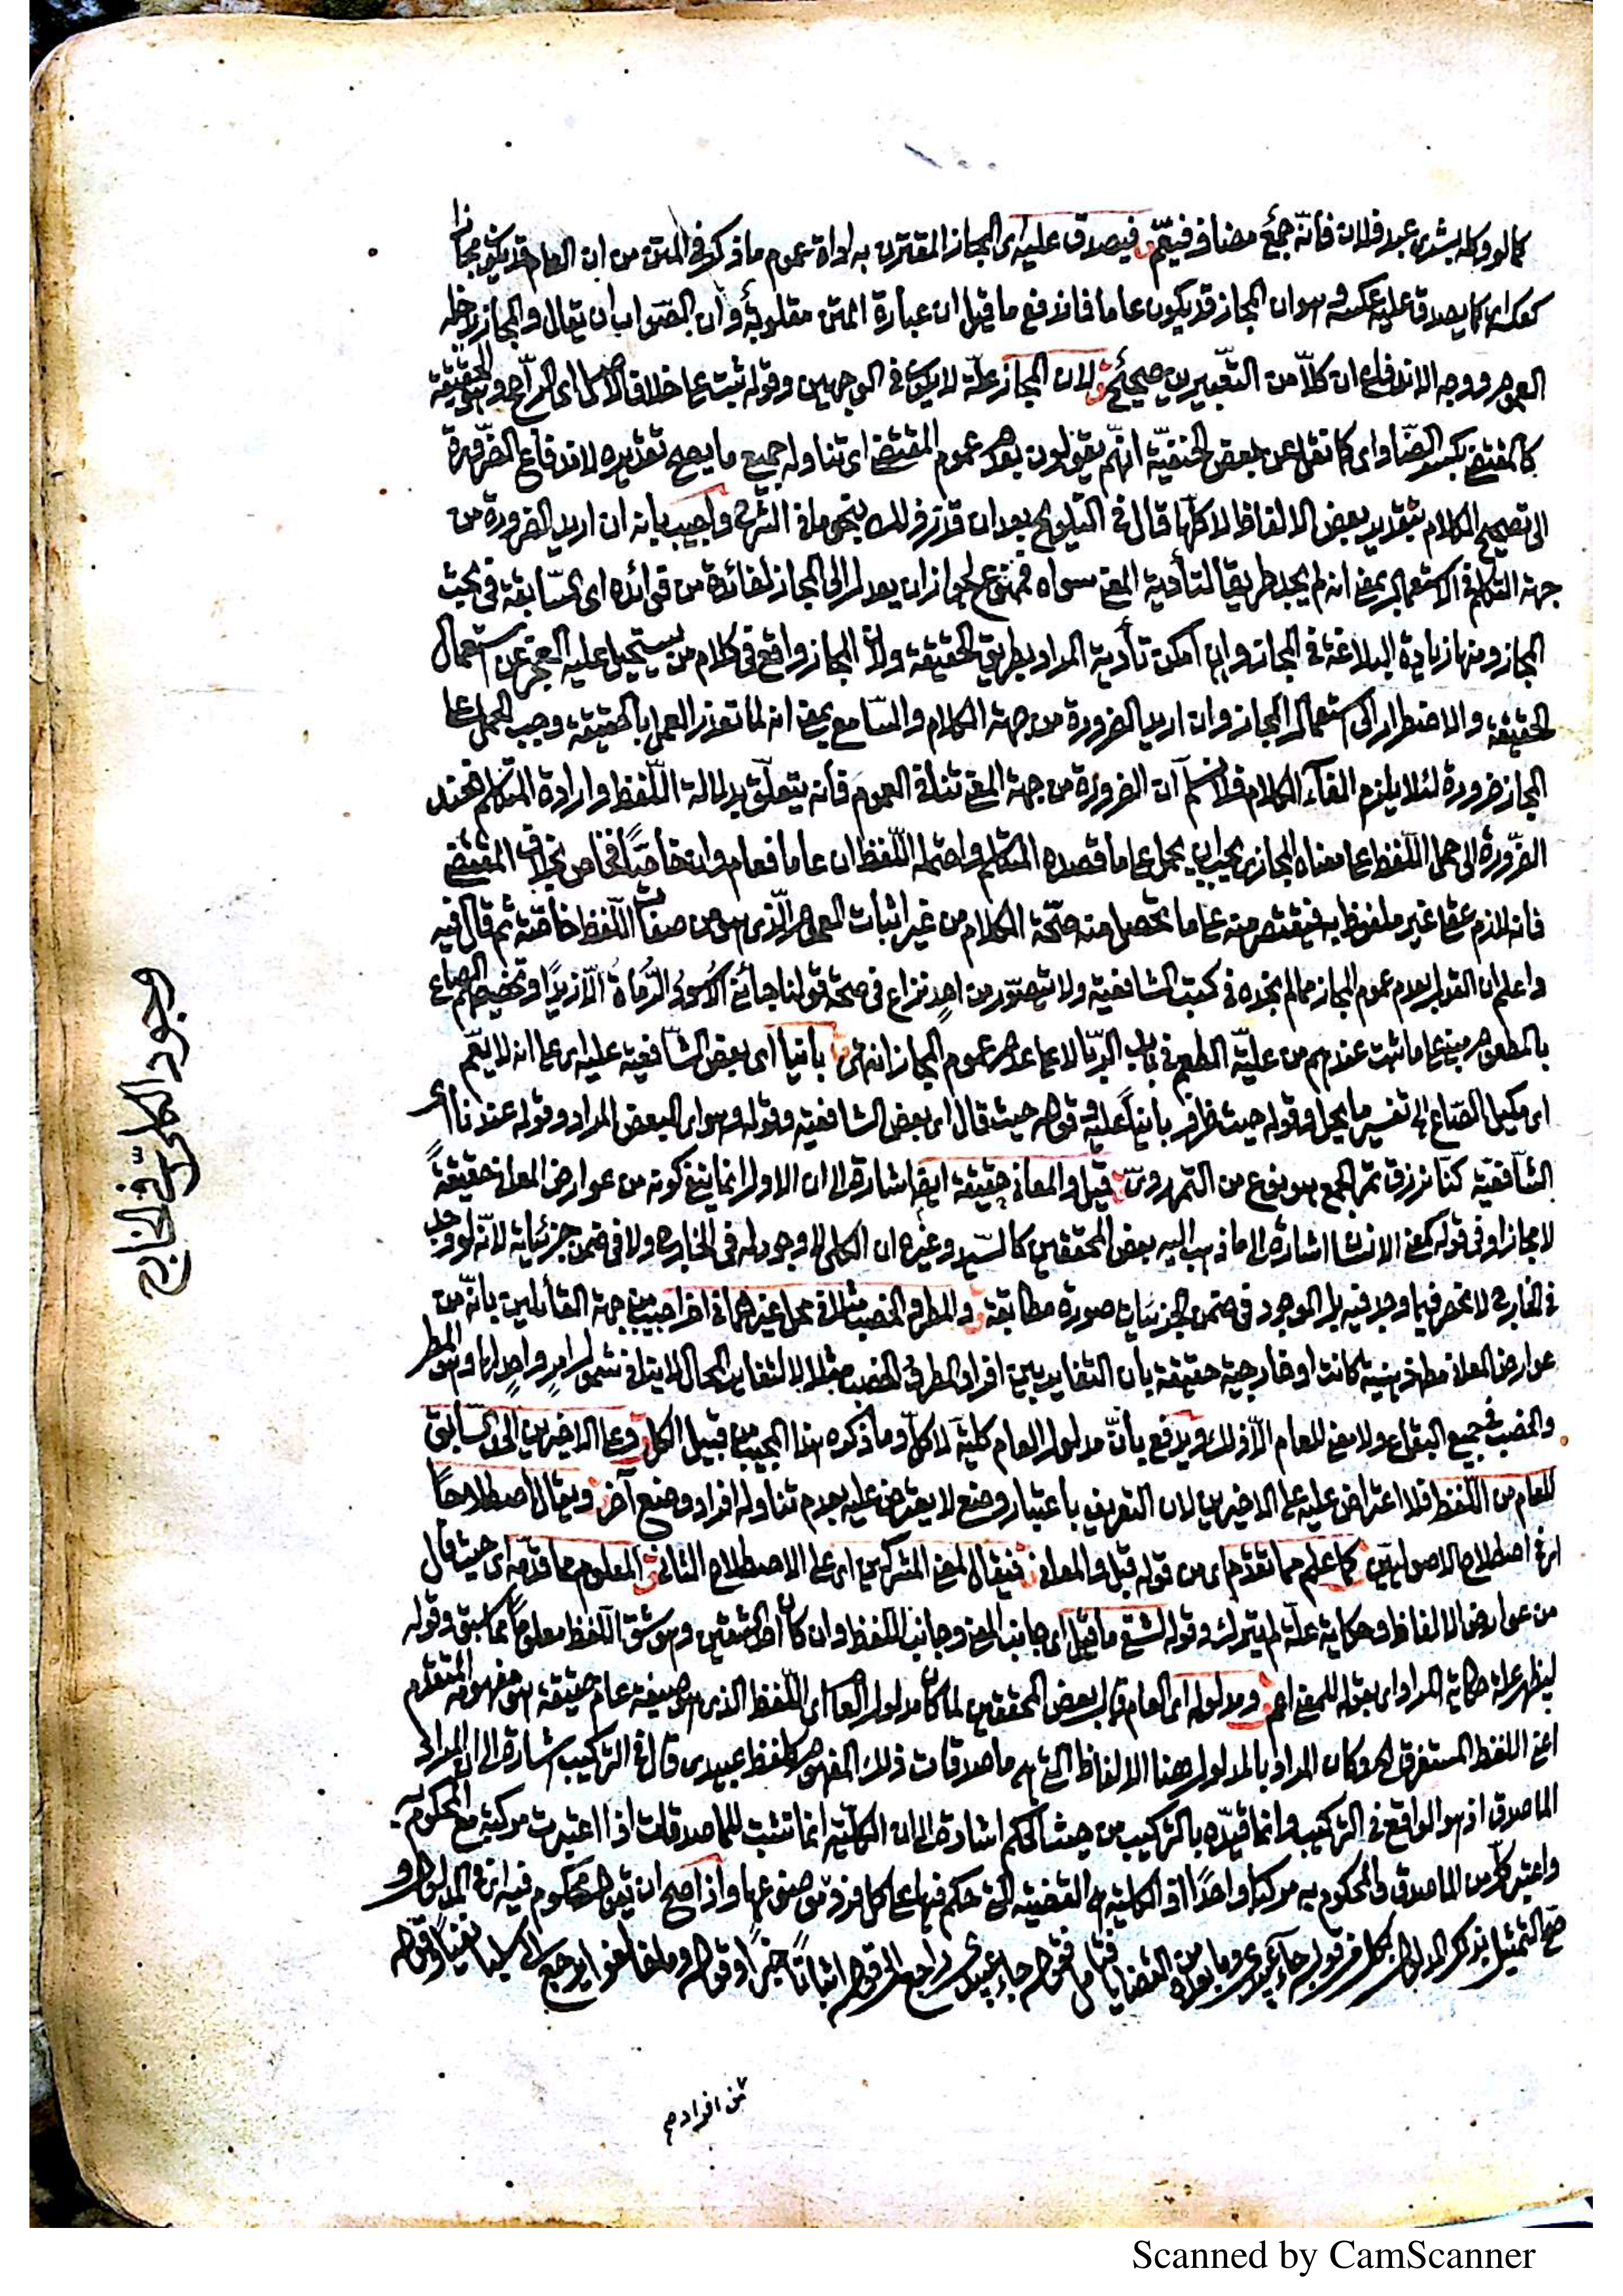 كما لو وكله بشرى عبد فلان فأنه جمع مضاف فيعم فيصدق عليه اى المجاز المقترن به اداة عموم ما ذكر فى المتن من ان العام قد يكون مجازا
كعكسه اى كما يصدق عليه عكسه وهو ان المجاز قد يكون عاما فاندفع ما قيل ان عبارة المتن مقلوبة وأن الصواب ان يقال والمجاز يدخله
العموم ووجه الاندفاع ان كلاّ من التعبيرين صحيح لان المجاز علة لا يكون فى الوجهين وقوله ثبت على خلاف الاصل اى الراجح وهو الحقيقة
كالمقتضى بكسر الضاد اى كما نقل عن بعض الحنفية انهم يقولون بعدم عموم المقتضى اى تناوله جميع ما يصح تقديره لاندفاع الضرورة
الى تصحيح الكلام بتقدير بعض الالفاظ لا كلها قال فى التلويح بعد ان قرر ذلك بنحو ما فى الشرح واجيب بانه ان اريد الضرورة من
جهة التكلم فى الاستعمال بمعنى انه لم يجد طريقا لتأدية المعنى سواه فممنوع لجواز ان يعدل الى المجاز لفائدة من فوائده اى السابقة فى بحث
المجاز ومنها زيادة البلاغة فى المجاز وان أمكن تأدية المراد بطريق الحقيقة ولأن المجاز واقع فى كلام من يستحيل عليه العجز عن استعمال
الحقيقة والاضطرار الى استعمال المجاز وان اريد الضرورة من جهة الكلام والسامع بمعنى انه لما تعذر العمل بالحقيقة وجب الحمل على
المجاز ضرورة لئلا يلزم الغاء الكلام فلا نسلم ان الضرورة من جهة المعنى تنافى العموم فأنه يتعلق بدلالة اللفظ وارادة المتكلم فعند
الضرورة الى حمل اللفظ على معناه المجازى يجب ان يحمل على ما قصده المتكلم واحتمله اللفظ ان عاما فعام وان خاصا فخاص بخلاف المقتضى
فانه لازم عقلى غير ملفوظ به فيقتصر منه على ما تحصل منه صحة الكلام من غير اثبات العموم الذى هو من صفات اللفظ خاصة ثم قال فيه
واعلم ان القول بعدم عموم المجاز مما لم نجده فى كتب الشافعية ولا يتصور من احد نزاع فى صحة قولنا جاءنى الاسود الرماة الا زيدا وتخصيصهم الصاع
بالمطعوم مبنى على ما ثبت عندهم من علية الطعم فى باب الربا لا على عدم عموم المجاز انتهى يأتيا اى بعض الشافعية عليه اى على انه لا يعم
اى مكيل الصاع الى تفسير ما يحل وقوله حيث ظرف يأتيا عليه وقوله حيث قال اى بعض الشافعية وقوله وهو اى البعض المراد وقوله عندنا أى
الشافعية كنا نرزق تمر الجمع هو نوع من التمر روى قيل والمعانى حقيقة ايضا اشارة الى ان الاول انما ينفى كونه من عوارض المعانى حقيقة
لا مجازا وفى قوله كمعنى الانسان اشارة الى ما ذهب اليه بعض المحققين كالسيد وغيره ان الكلى لا وجود له فى الخارج ولا فى ضمن جزئياته لانه لو وجد
فى الخارج لانحصر فيما وجد فيه بل الموجود فى ضمن الجزئيات صورة مطابقة والمطر والخصب مثلا فى محل غيرهما فى اخر اجيب من جهة القائلين بانه من
عوارض المعانى مط ذهنية كانت او خارجية حقيقة بأن التغاير بين افراد المطر والخصب مثلا بالتغاير المحال لا ينافى شمول امر واحد لها وهو المطر
والخصب فى جميع البقاع ولا معنى للعام الا ذلك ويدفع بأن مدلول العام كلية لا كل وما ذكره هذا المجيب من قبيل الكل وعلى الاخيرين الحد السابق
للعام من اللفظ فلا اعتراض عليه على الاخيرين لان التعريف باعتبار وضع لا يعترض عليه بعدم تناوله افراد وضع آخر ويقال اصطلاحا
اى فى اصطلاح الاصوليين كما علم مما تقدم اى من قوله قيل والمعانى فيقال لمعنى المشركين اى على الاصطلاح الثانى المعلوم مما قدمه اى حيث قال
من عوارض الالفاظ وحكاية علة لم يترك وقوله لشق ما قيل اى جانب المعنى وجانب اللفظ وان كان احد الشقين وهو شق اللفظ معلوما مما سبق وقوله
ليظهر علة حكاية المراد اى بقوله للمعنى اعم ومدلوله اى العام قال بعض المحققين لما كان مدلول العام اى اللفظ الذى هو صيغة عام حقيقة هو مفهومه المتقدم
اعنى اللفظ المستغرق الخ وكان المراد بالمدلول هنا الالفاظ التى هى ماصدقات ذلك المفهوم كلفظ عبيدى قال فى التركيب اشارة الى ان المراد
الماصدق اذ هو الواقع فى التركيب وانما قيده بالتركيب من حيث الحكم اشارة الى ان الكلية انما تثبت للماصدقات اذا اعتبرت مركبة مع المحكوم به
واعتبر كل من الماصدق والمحكوم به مركبا واحدا اذ الكلية هى القضية التى حكم فيها على كل فرد من موضوعها واذا صح ان يقول محكوم فيه اى فى المدلول و
صح التمثيل بذلك المدلول بكل فرد قوله جاء عبيدى وما بعده من القضايا فتأمل فقوله جاء عبيدى راجع الى قوله اثباتا خبرا وقوله وما خالفوا يرجع الى سلبا نفيا وقوله
من افراده
وجود الكلى فى الخارج
Scanned by CamScanner